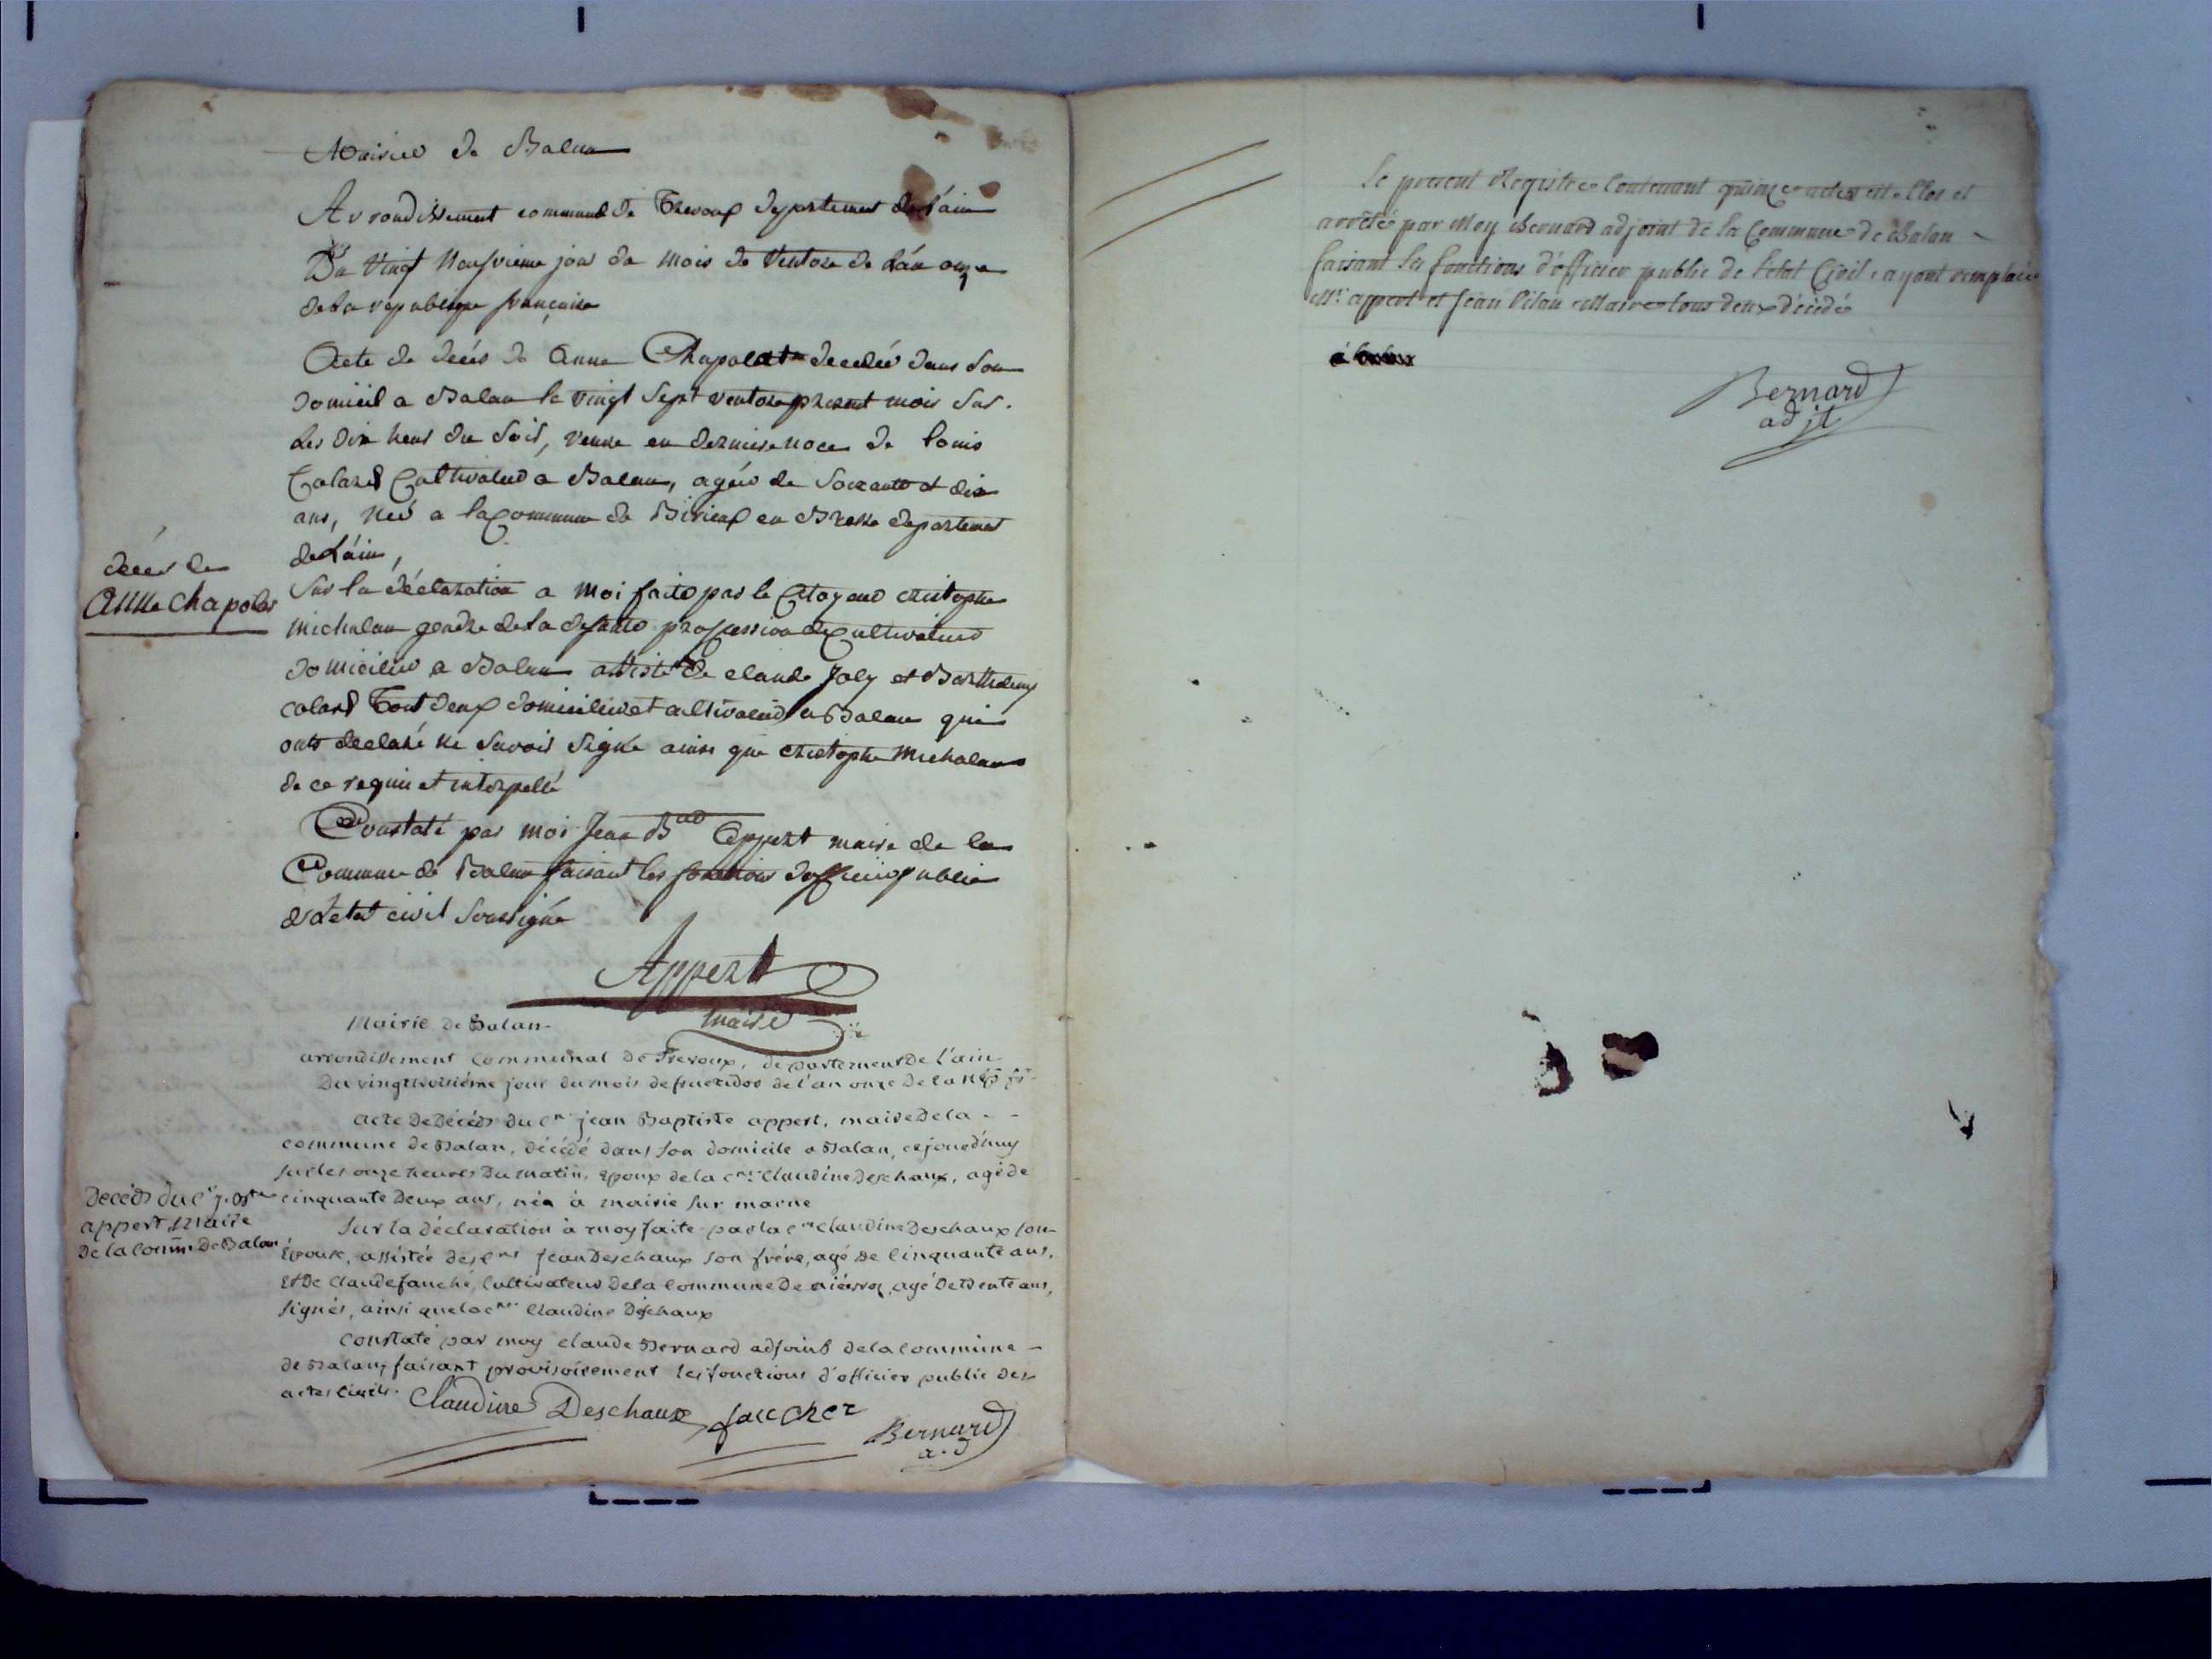 Mairie de Balan
Arrondissement communal de Trevoux departement de l'ain
Du Vingt Neufvieme jour du mois de Ventose de L'an onze
de la republique française
Acte de decés de Anne Chapolat decedée dans Son
domicil a Balan le vingt Sept ventose present mois Sur
Les dix heur du Soir, veuve en derniere noce de Louis
Colard Cultivateur a Balan, agée de Soixante et dix
ans, née a la Commune de Birieux en Bresse departement
de L'ain,
Sur la déclaration a moi faite par le Citoyen christophe
michalan gendre de la defunte profession de Cultivateur
domicilié a Balan assisté de claude Joly et Barthelemy
colard Tout deux domicilié et cultivateur a Balan qui
ont declaré ne Savoir Signé ainsi que christophe Michalan
de ce requi et interpellé
Constaté par moi Jean B Appert maire de la
Commune de Balan faisant les fonctions d'officier public
de L'etat civil Soussigné
Appert
maire
decés de
Anne Chapolat
Mairie de Balan
arrondissement communal de Trevoux, département de l'ain
Du vingt troisiéme jour du mois de fructidor de l'an onze de la Rép fr
acte de Décés du Cn jean Baptiste appert, maire de la
commune de Balan, décédé dans son domicile a Balan, cejourd'huy
sur les onze heures Du matin, Epoux de la cne Claudine Deschaux, agé de
cinquante Deux ans, née à mairie sur marne
Sur la déclaration à moy faite par la cne claudine Deschaux son
Épouse, assistée des Cns jean Deschaux son frére, agé de Cinquante ans,
Et De Claude fauché, Cultivateur De la Commune De agé De trente ans,
signés, ainsi que la cne Claudine Déschaux
Constaté par moy claude Bernard adjoint de la Commune
de Balan, faisant provisoirement les fonctions d'officier public des
actes Civils.
Claudine Deschaux faucher
Bernard
a.d
Décés du Cn j. Bste
appert Maire
De la Comm De Balan
le present Registre Contenant quinze actes est Clos et
arrêté par Moy Bernard adjoint de la Commune de Balan
faisant les fonctions d'officier public de l'etat Civil, ayant remplacé
Mr appert et Jean Pilan Maire tous deux décédé
Bernard
adjt